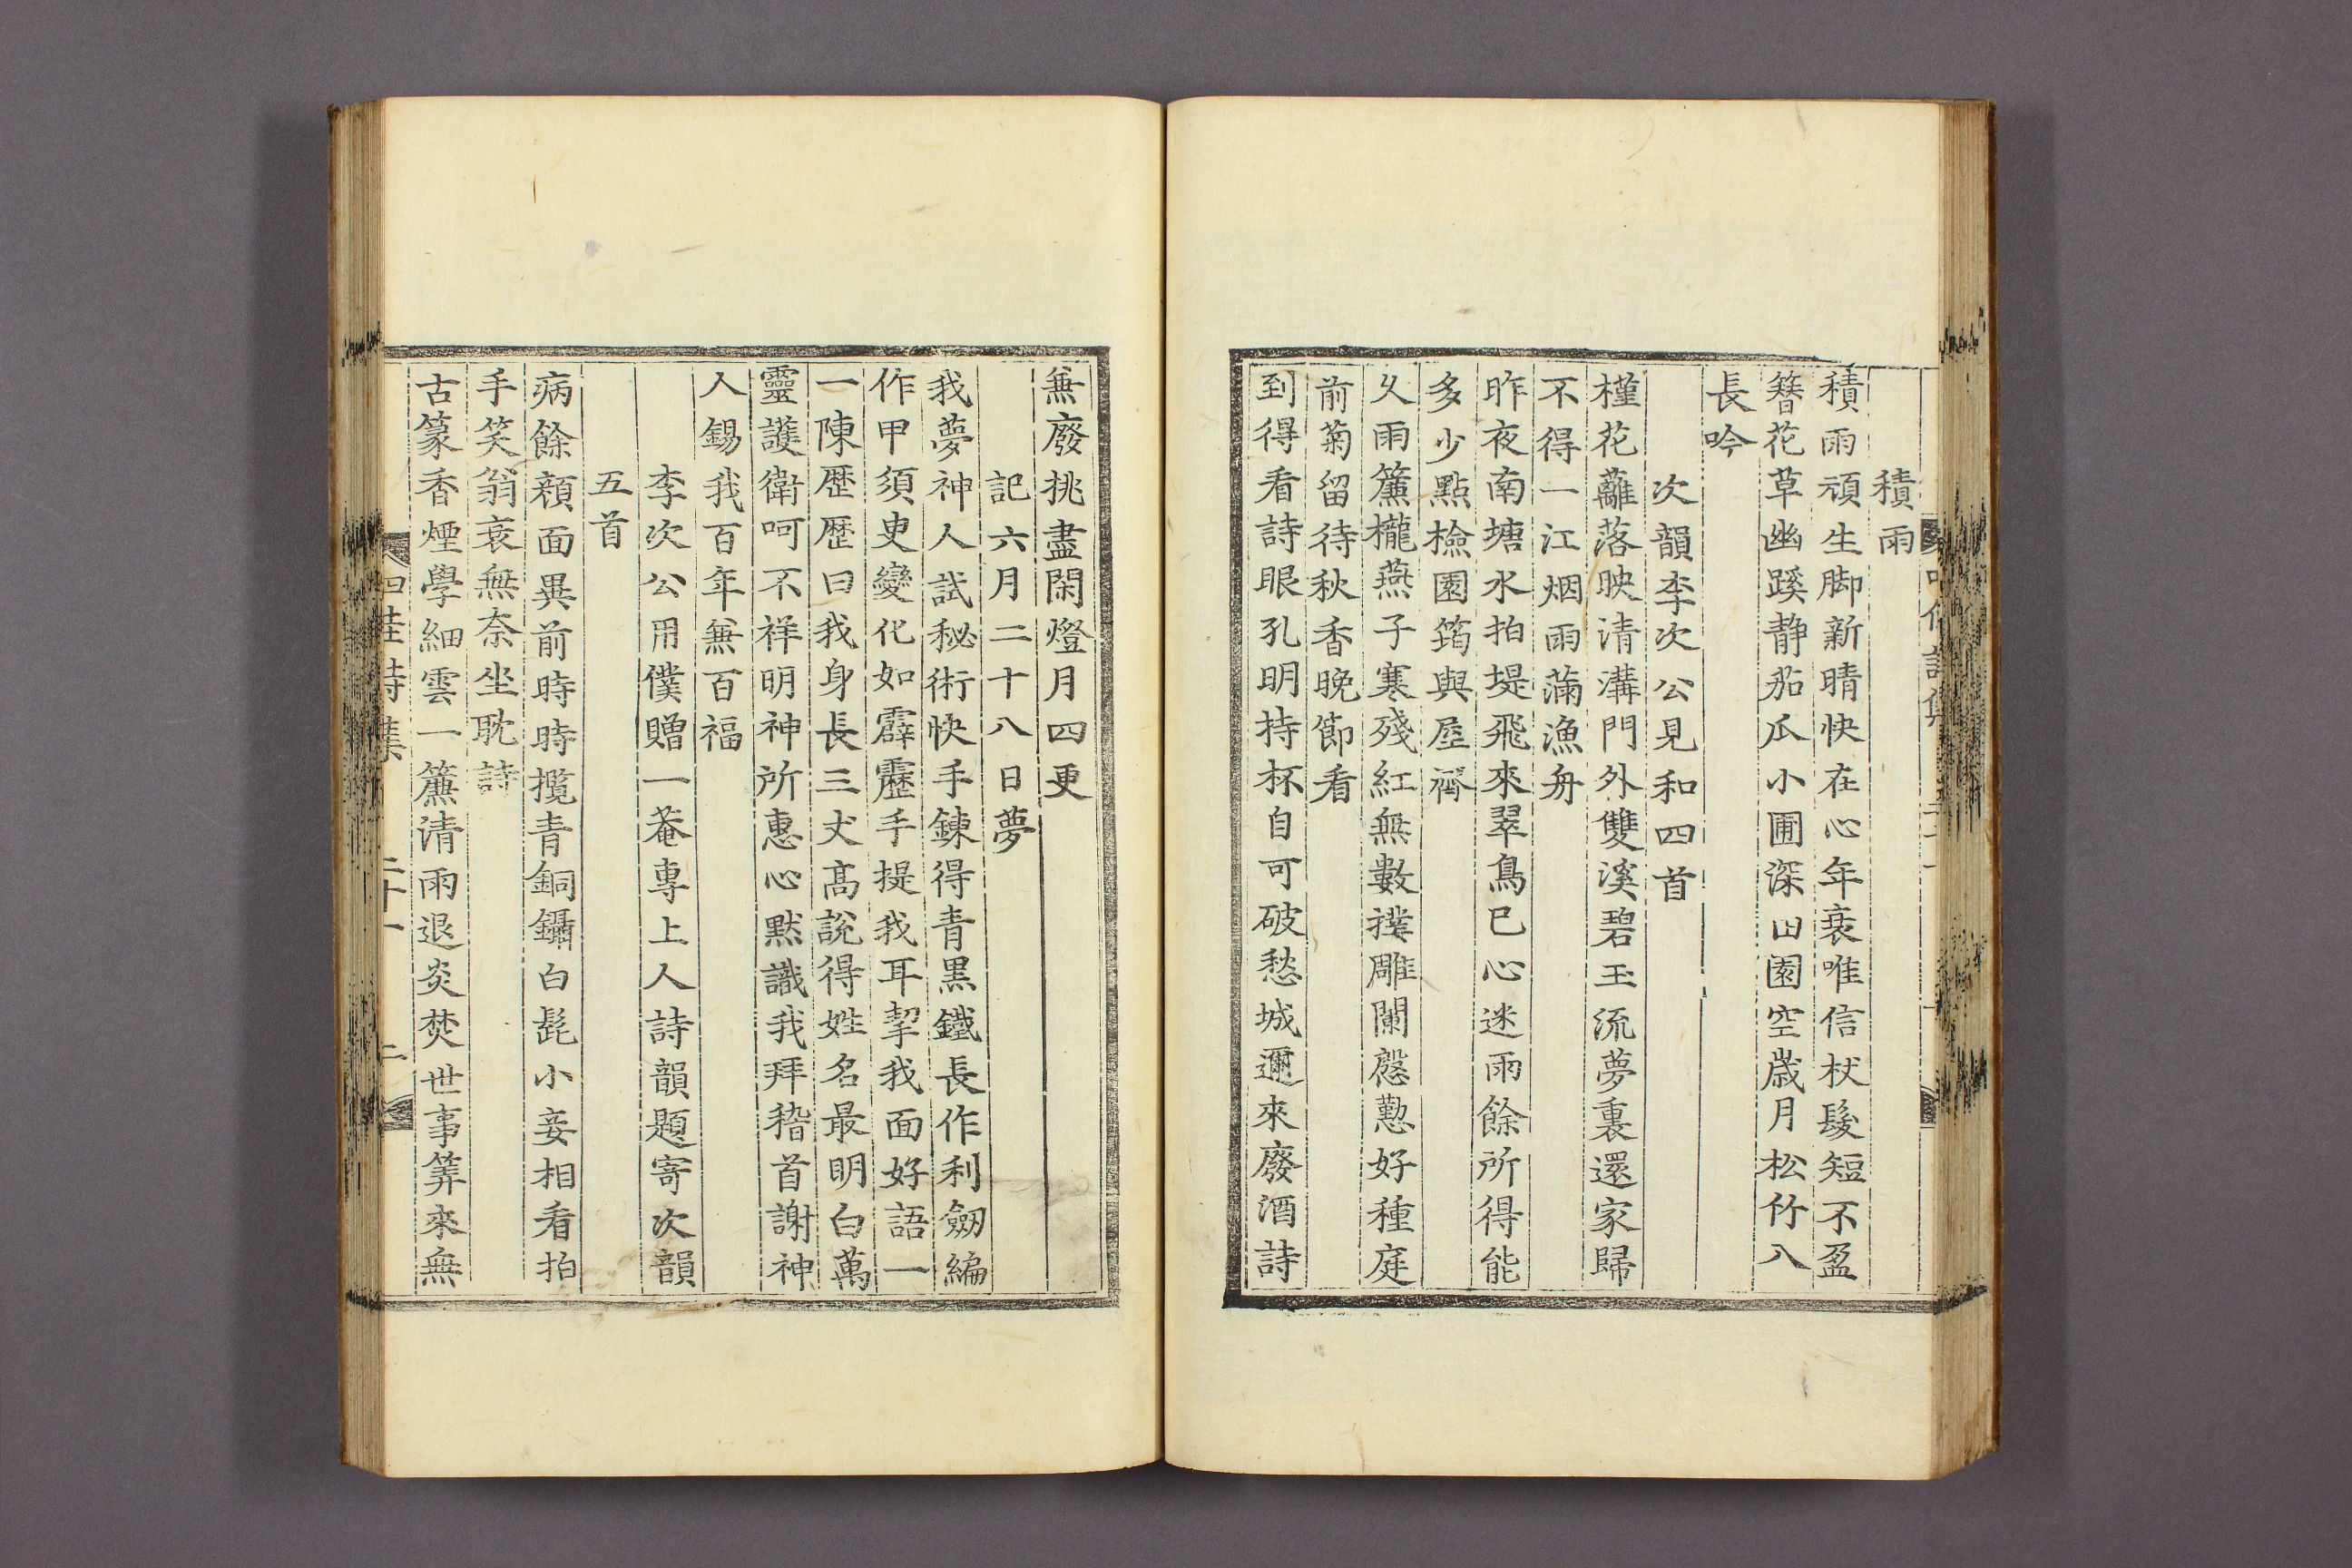 積雨
積雨頑生脚新晴快在心年衰唯信杖髮短不盈
簪花草幽蹊静茄瓜小圃深田園空歲月松竹入
長吟
次韻李次公見和四首
槿花蘺落映清溝門外雙溪碧玉流夢裏還家歸
不得一江烟雨滿漁舟
昨夜南塘水拍堤飛來翠鳥已心迷雨餘所得能
多少點檢園筠與屋齊
久雨簾櫳燕子寒殘紅無數撲雕闌慇懃好種庭
前菊留待秋香晚節看
到得看詩眼孔明持杯自可破愁城邇來廢酒詩
無廢挑盡閑燈月四更
記六月二十八日夢
我夢神人試秘術快手鍊得青黑鐵長作利劔編
作甲須臾變化如霹靂手提我耳挈我面好語一
一陳歷歷曰我身長三丈髙說得姓名最明白萬
靈護衛呵不祥明神所惠心黙識我拜稽首謝神
人錫我百年無百福
李次公用僕贈一菴專上人詩韻題寄次韻
五首
病餘顔面異前時時攬青銅鑷白髭小妾相看拍
手笑翁衰無奈坐耽詩
古篆香煙學細雲一簾清雨退炎焚世事筭來無
四隹詩集 二十一 二